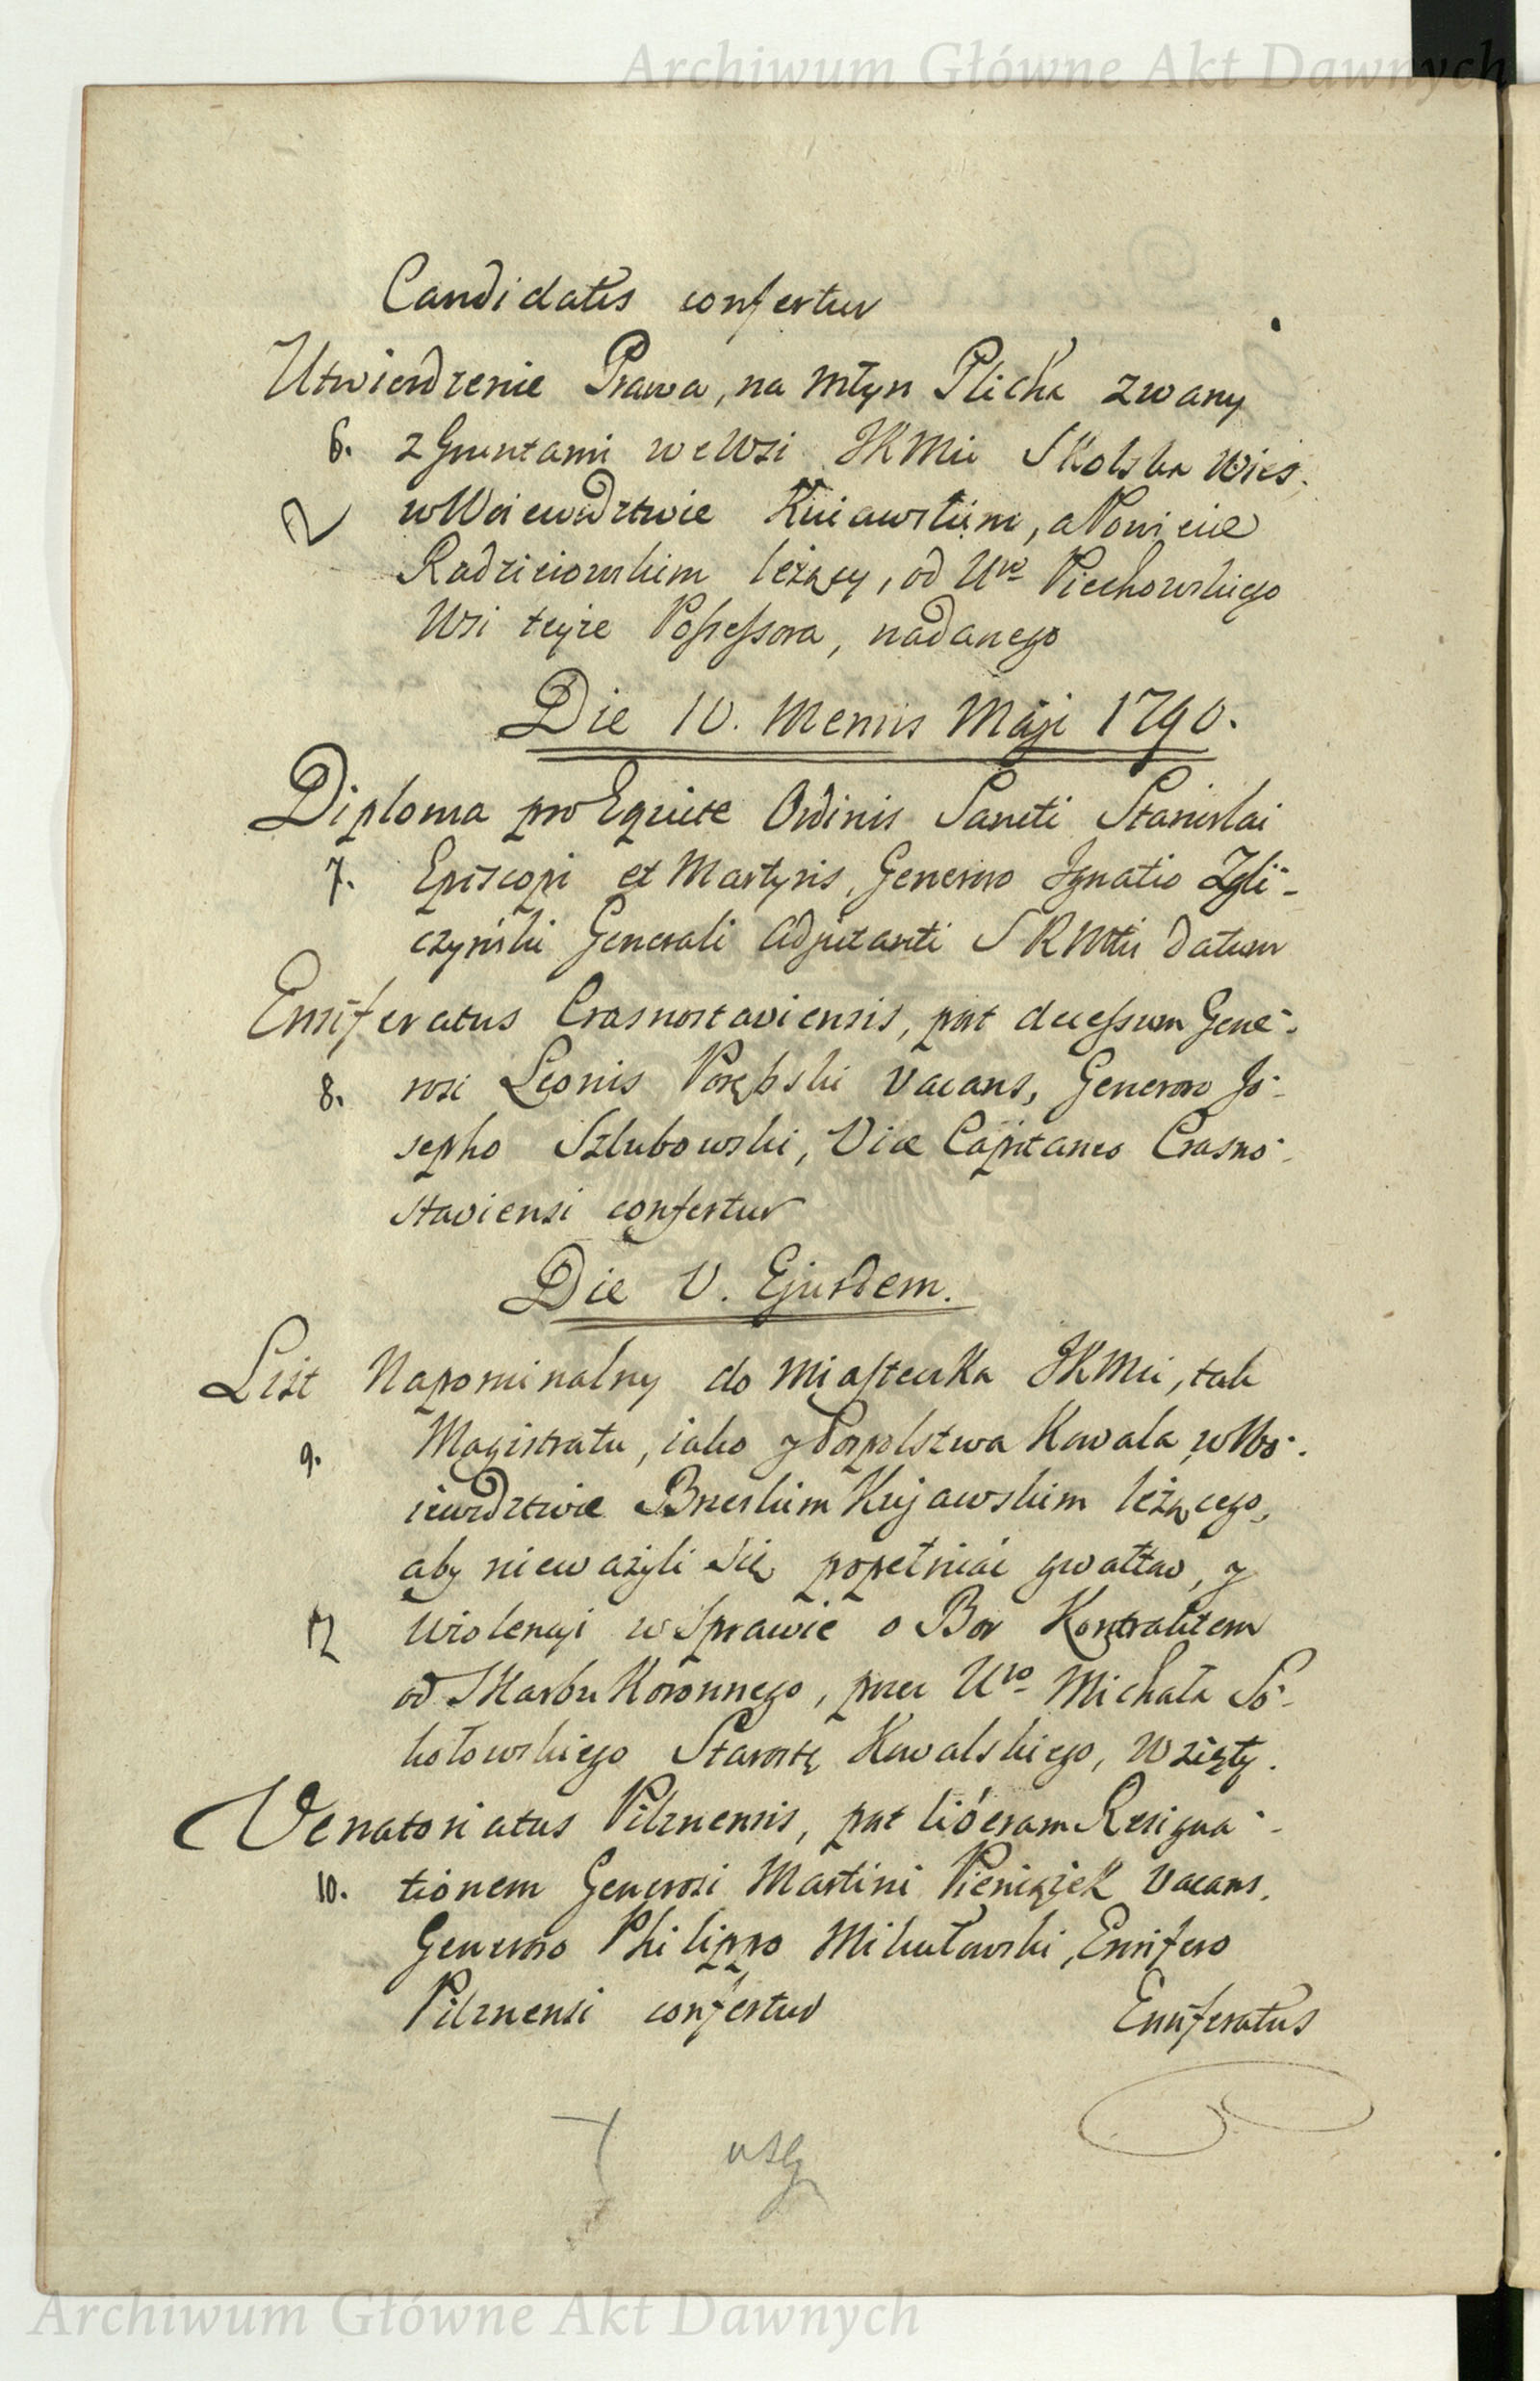 Archiwum Główne Akt Dawnych
Candidatis confertur
Utwierdzenie Prawa, na Młyn Plicha zwany
6. z Gruntami we Wsi JKMci Skolska Wieś,
w Woiewodztwie Kuiawskim, a Powiecie
Radzieiowskim leżący, od Uro Piechowskiego
Wsi teyże Possessora, nadanego
Die 10. Mensis Maji 1790.
Diploma pro Equite Ordinis Sancti Stanislai
7. Episcopi et Martyris, Generoso Ignatio Zgli-
czyński Generali Adjutanti SRMtis datum
Ensiferatus Crasnostaviensis, post decessum Gene-
8. rosi Leonis Porębski vacans, Generoso Jo-
sepho Szlubowski, Vice Capitaneo Crasno-
staviensi confertur
Die V. Ejusdem.
List Napominalny do Miasteczka JKMci, tak
9. Magistratu, iako y Pospolstwa Kowala, w Wo-
iewodztwie Brzeskim Kujawskim leżącego,
aby nieważyli się popełniać gwałtow, y
Wiolencyi w Sprawie o Bor Kontraktem
od Skarbu Koronnego, przez Uro Michała So-
kołowskiego Starostę Kowalskiego, Wzięty.
Venatoriatus Pilznensis, post liberam Resigna-
10. tionem Generosi Martini Pieniążek vacans,
Generoso Philippo Mikułowski, Ensifero
Pilznensi confertur
Ensiferatus
Archiwum Główne Akt Dawnych